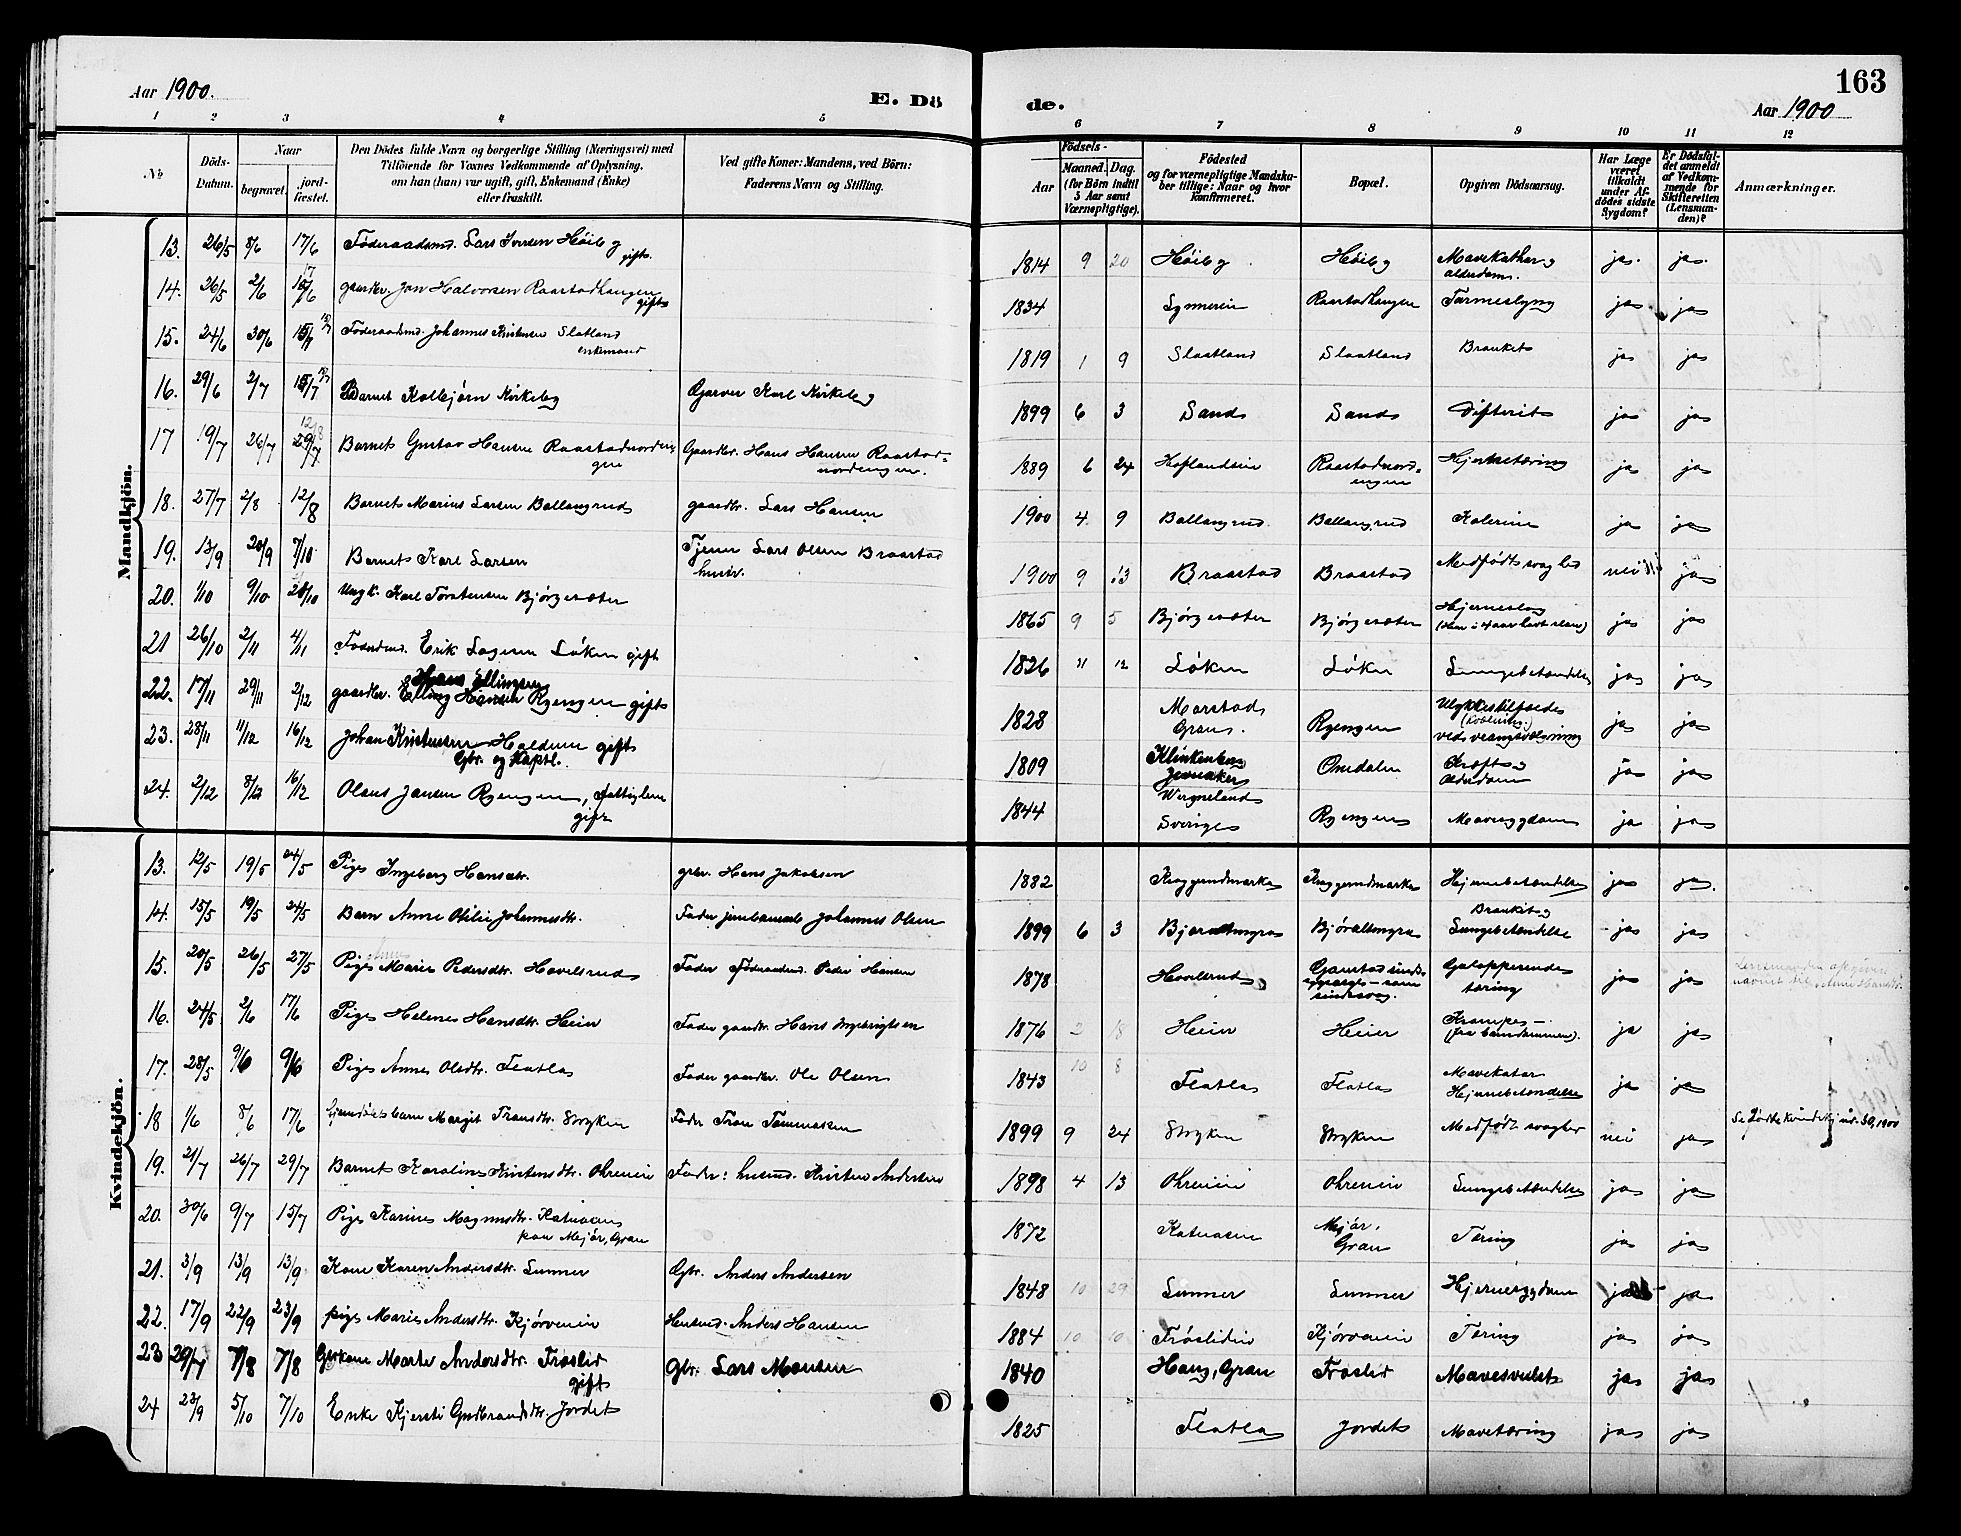 Aar 1900.
E. Dö
de.
163
Aar 1900
1 2 3 4 5 6 7 8 9 10 11 12
No
Döds-Datum.
Naar
begravet.
jord-fæstet.
Den Dödes fulde Navn og borgerlige Stilling (Næringsvei) med
Tilföiende for Voxnes Vedkommende af Oplysning.
om han (hun) var ugift, gift, Enkemand (Enke)
eller fraskilt.
Ved gifte Koner: Mandens, ved Börn:
Faderens Navn og Stilling.
Födsels-
Aar
Maaned. Dag.
(for Börn indtil
5 Aar samt
Værnepligtige).
Födested
og for værnepligtige Mandska-
ber tillige: Naar og hvor
konfirmeret.
Bopæl.
Opgiven Dödsaarsag.
Har Læge
været
tilkaldt
under Af-
dödes sidste
Sygdom?
Er Dödsfal-
det anmeldt
af Vedkom-
mende for
Skifteretten
(Lensman-
den)?
Anmærkninger.
Mandkjön.
13. 26/5 8/6 17/6 Føderaadsmd. Lars Iversen Høiby gift. 1814 9 20 Høiby Høiby Mavekathar og alderdom. ja. ja.
14. 26/5 2/6 17/6 gaardbr. Jon Halvorsen Raastadhaugen gift 1834 Lynnerein Raastadhaugen Tarmeslyng ja ja
15. 24/6 30/6 15/7 Føderaadsmd. Johannes Kristensen Slatland enkemand 1819 1 9 Slaatland Slaatland Bronkit ja ja
16. 29/6 2/7 15/7 Barnet Kolbjørn Kirkeby Garver Karl Kirkeby 1899 6 3 Sand Sand Difterit ja ja
17 19/7 26/7 29/7 12/8 Barnet Gustav Hansen Raastadnordengen Gaardbr. Hans Hansen Raastad-nordengen. 1889 6 24 Raastadnord-engen ja ja
18. 27/7 2/8 12/8 Barnet Marius Larsen Ballangrud gaardbr. Lars Hansen 1900 4. 9 Ballangrud. Ballangrud Kolerine ja ja
19. 13/9 20/9 7/10 Barnet Karl Larsen Tjener Lars Olsen Braastad 1900 9 13 Braastad Braastad Medfødt svaghed nei ja
20. 1/10 9/10 21/10 Ungk. Karl Torstensen Bjørgesæter 1865 9 5 Bjørgesæter Bjørgesæter Hjerneslag ja ja
21 26/10 2/11 4/11 Føderdmd. Erik Løken gift 1826 11 12 Løken Løken Lungebetændelse ja ja
22. 17/11 29/11 2/12 gaardbr. Hans Ellingsen Elling Hansen Rgengen gift 1828 Morstad Gran. Rgengen Ulykkestilfælde (Kvælning) ja ja
23. 28/11 11/12 16/12 Johan Kristensen Haldum gift Gbr. og Kapt. 1809 Klinkenberg Jevnaker Onsdalen Kræft og Alderdom ja ja
24. 2/12 8/12 16/12 Olaus Jansen Rgengen, fattiglem gift 1844 Wermeland Sverige Rgengen Mavesygdom ja ja
Kvindekjön.
13. 12/5 19/5 24/5 Pige Ingeborg Hansdtr. gbr. Hans Jakobsen 1882 Ruggerudmarka Ruggerudmarka Hjernebetændelse ja ja.
14. 15/5 19/5 24/5 Barn Anne Otilie Johannesdtr. Fader Johannes Olsen 1899 6 3 Bronkit og Lungebetændelse ja ja
15. 20/5 26/5 27/5 Pige Marie Pedersdtr. Hovelsrud Fader Føderaadsmd. Peder Hansen 1878 Hovelsrud Galopperende tæring ja ja
16. 24/5 2/6 17/6 Pige Helene Hansdtr. Heier Fader gaardbr. Hans Ingebrigtsen 1876 2 18 Heier Heier Krampe - (fra barndommen). ja ja
17. 28/5 9/6 9/6 Pige Anne Olsdtr. Flatla Fader gaardbr. Ole Olsen 1843 10 8 Flatla Flatla Mavekatar Hjernebetændelse ja ja
18 1/6 8/6 17/6 Margit Transdtr. Stryken Fader Tron Tommasen 1899 9 24 Stryken Stryken Medfødt svaghed nei ja Se Fødte kvindekj nr. 30, 1900
19. 21/7 26/7 29/7 Barnet Karoline Kristensdtr. Ohrenein Fader: husmd. Kristen Andersen 1898 4 13 Ohrenein Ohrenein Lungebetændelse ja ja
20. 30/6 9/7 15/7 Pige Karine Magnusdtr. Katnosen paa Mejør, Gran 1872 Katnosen Mejør, Gran Tæring ja ja
21. 3/9 13/9 13/9 Kone Karen Andersdtr. Lunner Gbr. Anders Andersen 1848 10 29 Lunner Lunner Hjernesygdom ja ja
22. 17/9 22/9 23/9 pige Marie Andersdtr. Kjørvenein Husmd. Anders Hansen 1884 10 10 Frøslidein Kjørvenein Tæring ja ja
23 29/7 7/8 7/8 Gbrkone Marte Andersdtr. Frøslid gift Gbr. Lars Monsen 1840 Haug, Gran Frøslid Mavesvulst ja ja
24 23/9 5/10 7/10 Enke Kjersti Gudbrandsdtr. Jordet 1825 Flatla Jordet Mavetæring ja ja